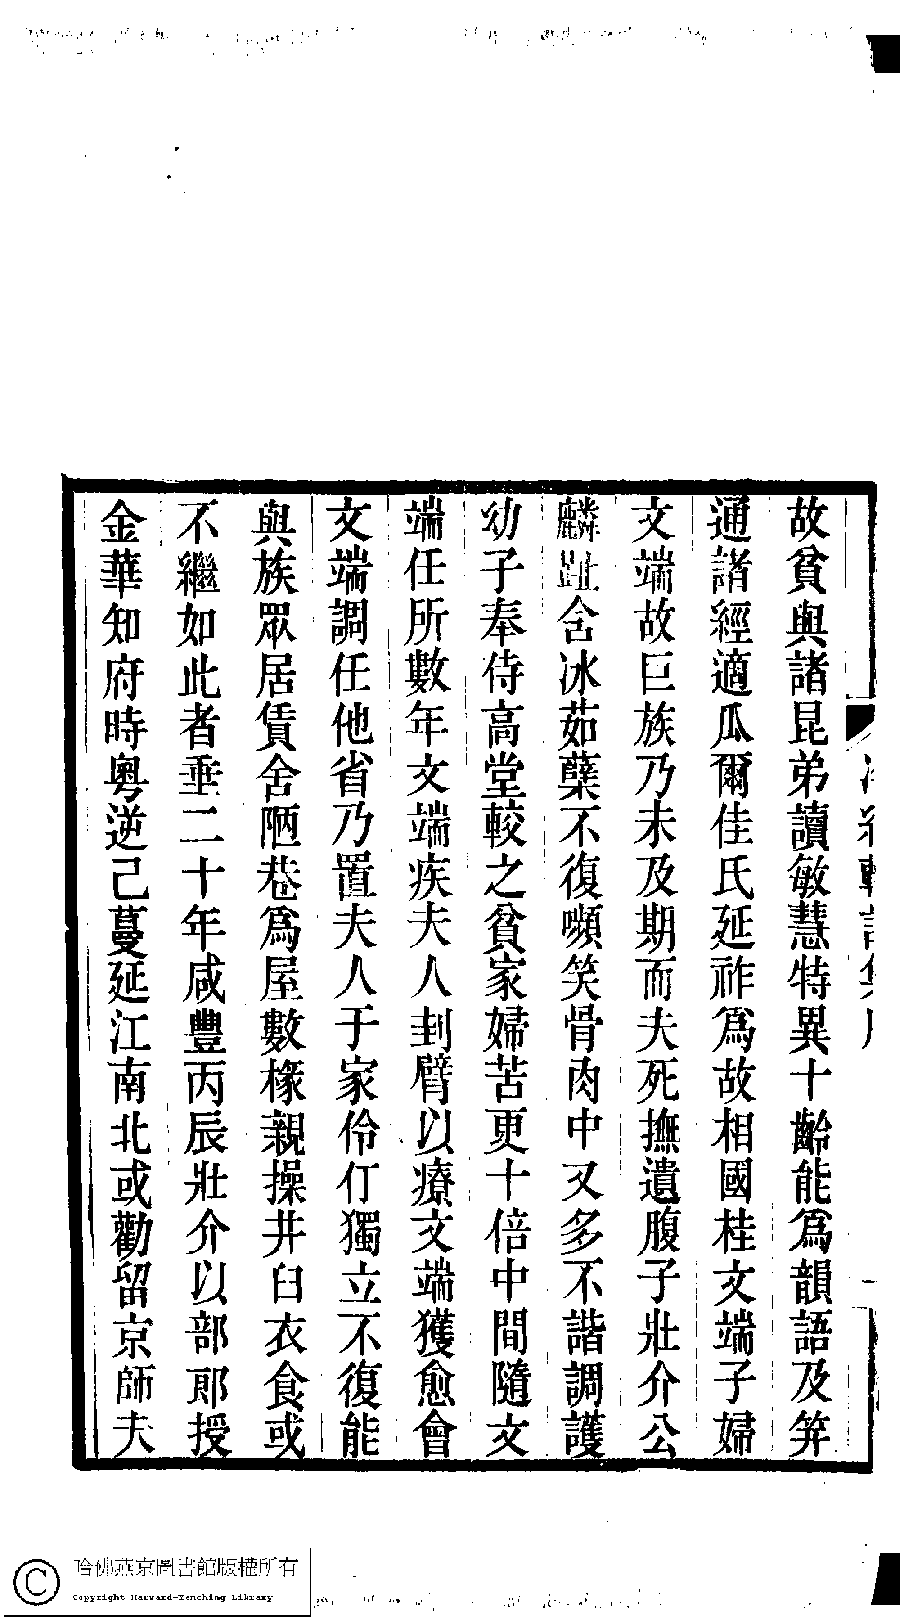 故貧與諸昆弟讀敏慧特異十齡能爲韻語及笄
通諸經適瓜爾佳氏延祚爲故相國桂文端子婦
文端故巨族乃未及期而夫死撫遺腹子壯介公
麟趾含冰茹蘖不復嚬笑骨肉中又多不諧調護
幼子奉侍高堂較之貧家婦苦更十倍中間隨文
端任所數年文端疾夫人刲臂以療文端獲愈會
文端調任他省乃置夫人于家伶仃獨立不復能
與族眾居賃舍陋巷爲屋數椽親操井臼衣食或
不繼如此者垂二十年咸豐丙辰壯介以部郎授
金華知府時粤逆已蔓延江南北或勸留京師夫
哈佛燕京圖書館版權所有
Copyright Harvard-Yenching Library